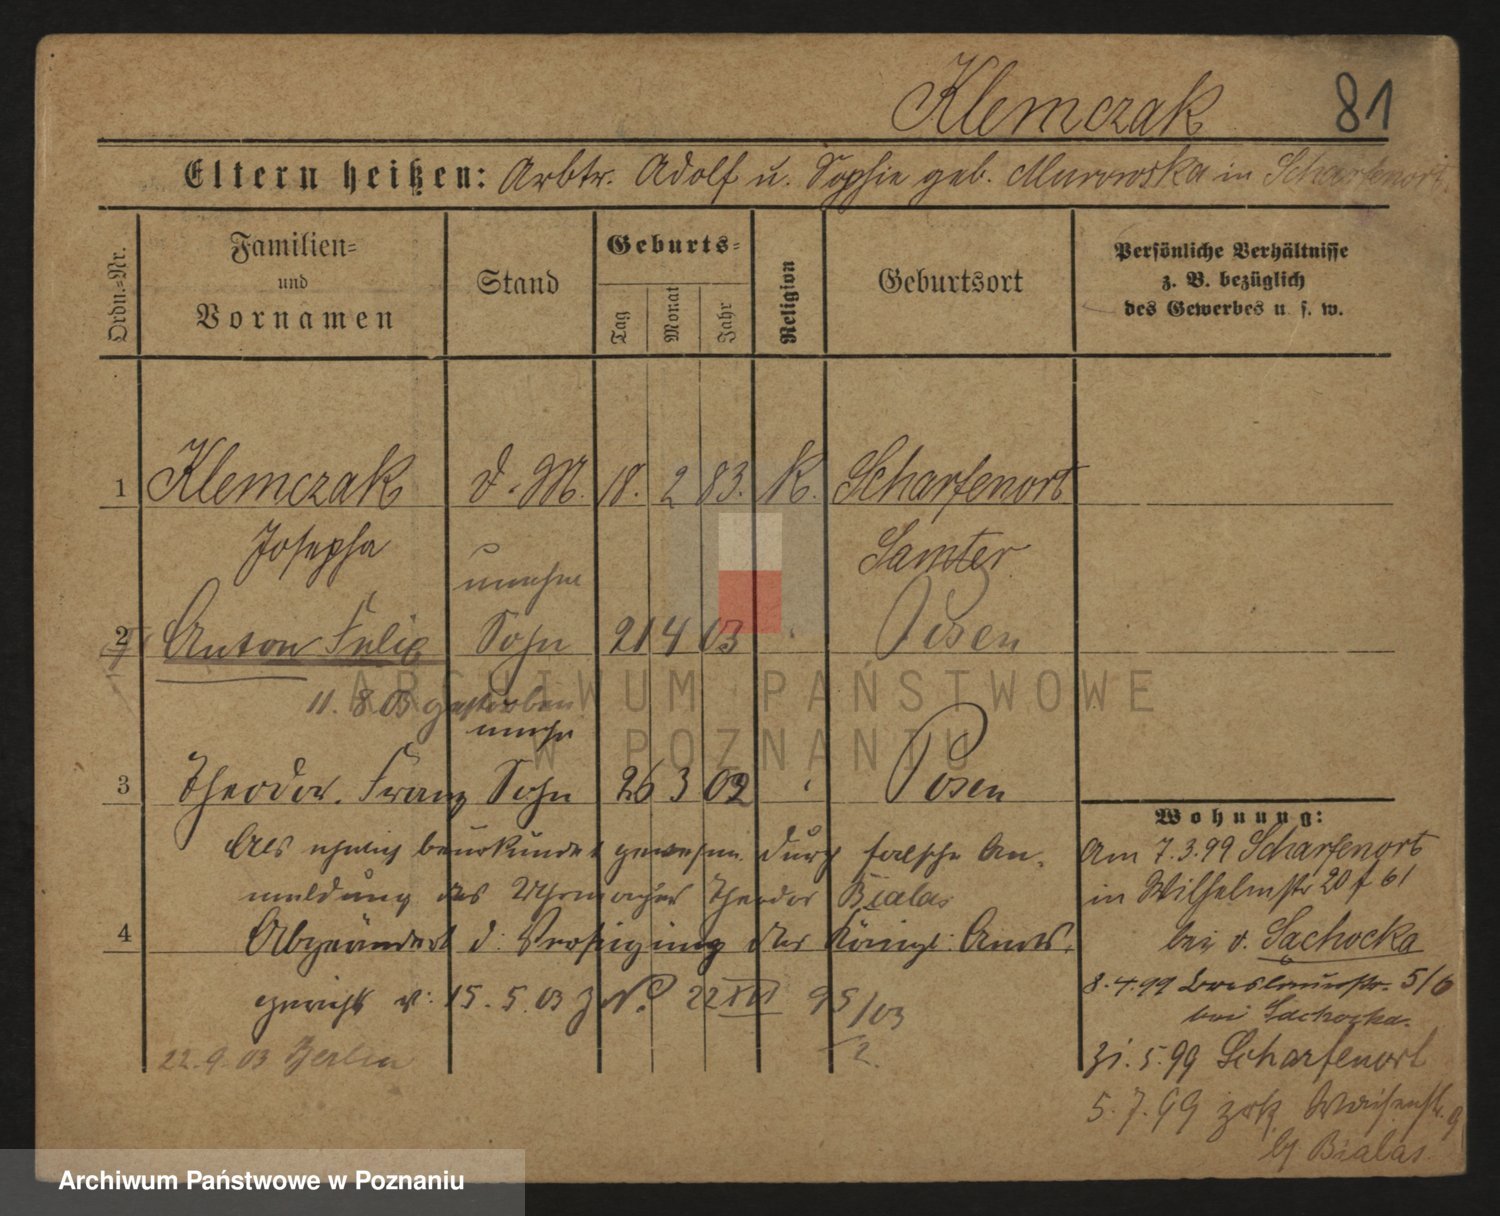 Klemczak 81
Eltern heißen: Arbtr. Adolf u. Sophie geb. Murowska in Scharfenort
Ordn.-Nr.
Familien-
und
Vornamen
Stand
Geburts-
Tag
Monat
Jahr
Religion
Geburtsort
Persönliche Verhältnisse
z. B. bezüglich
des Gewerbes u. s. w.
1 Klemczak d. M. 18. 2 83. K. Scharfenort
Josepha Samter
unehel
2 Anton Felix Sohn 21 4 03 " Posen
11. 8. 03 gestorben
ARCHIWUM PAŃSTWOWE
unehe
W POZNANIU
3 Theodor. Franz Sohn 26 3 02 " Posen
Als ehelich beurkundet gewesen durch falsche An-
meldung des Uhrmachers Theodor Bialas
4 Abgeändert d. Verfügung des Königl. Amts-
gerichts v. 15. 5. 03 22 XVI 95/03
2.
22. 9. 03 Berlin
Wohnung:
Am 7.3.99 Scharfenort
in Wilhelmstr 20 61
bei v. Sachocka
8.4.99 Breslauerstr. 5/6
bei Sachocka.
31. 5. 99 Scharfenort
5. 7. 99 zrk Waisenstr. 9
b/ Bialas.
Archiwum Państwowe w Poznaniu